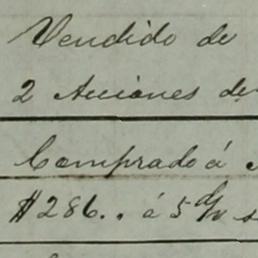 Vendido de
2 Acciones de
Comprado á
$286.. á 5 d/v s